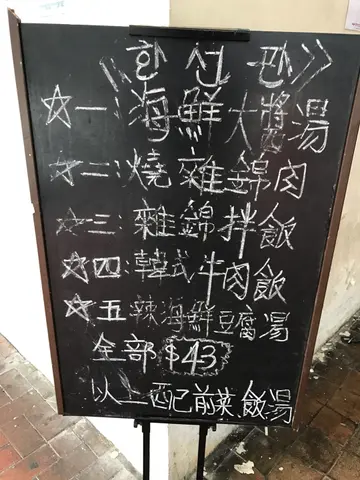 한선관
☆一:海鮮大醬湯
☆二:燒雜錦肉
☆三:雜錦拌飯
☆四:韓式牛肉飯
☆五辣海鮮豆腐湯
全部$43
以上配前菜,飯湯